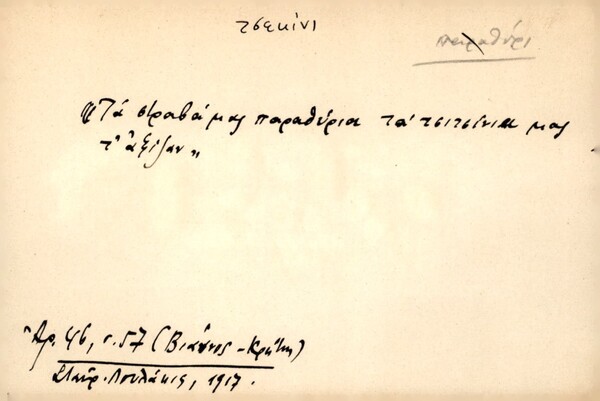 τσεκίνι
παραθύρι
"Τά στραβά μας παραθύρια τά τσιτσίνια μας
τ' ἀξίζαν"
Ἀρ. 46, σ. 57 (Βιάννος - Κρήτη)
Σταῦρ. Λουλάκις, 1917.